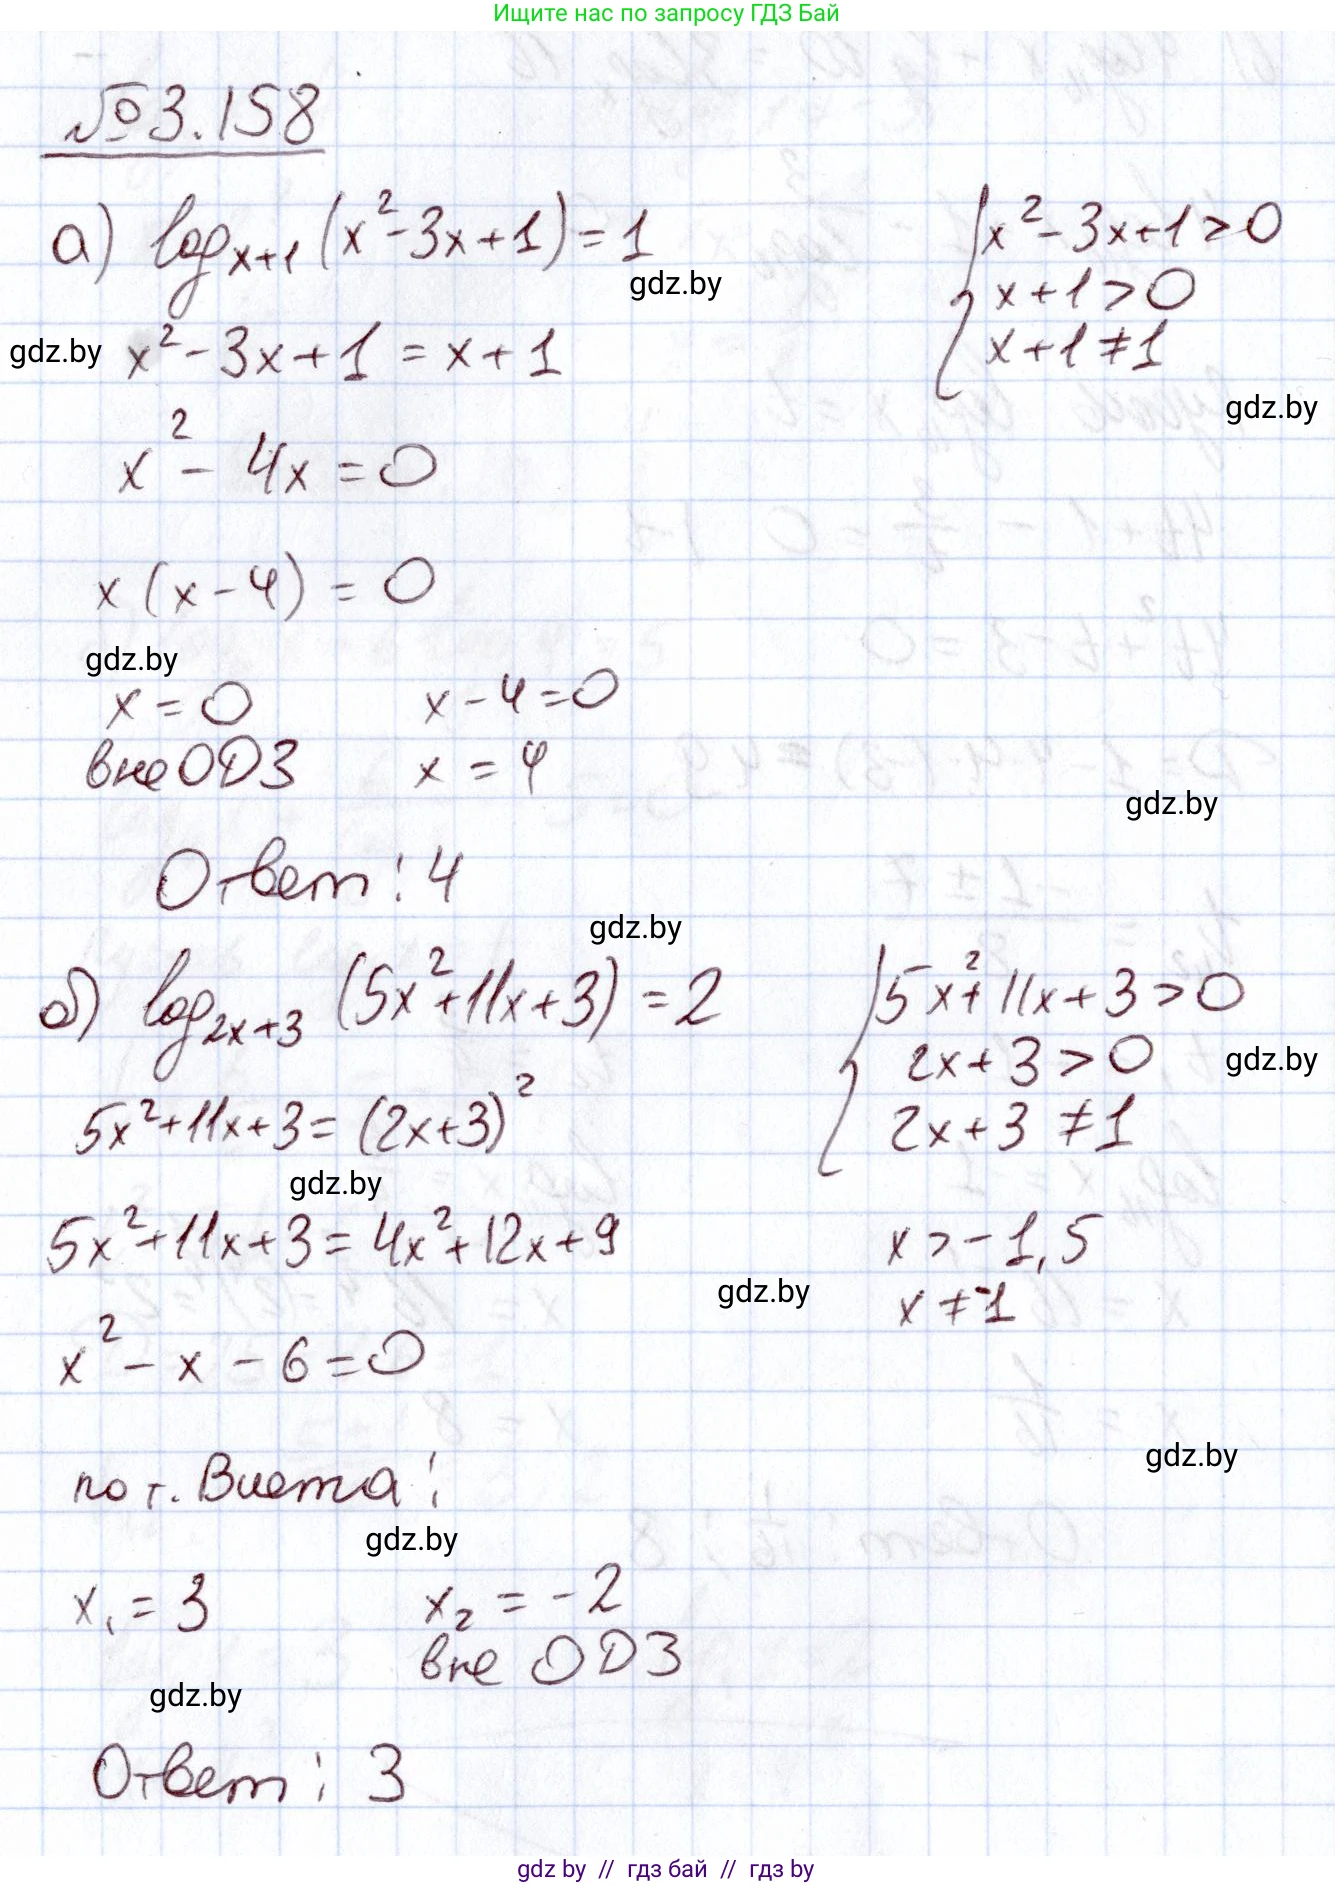 Ищите нас по запросу ГДЗ Бай
№3.158
а) log_{x+1} (x² - 3x + 1) = 1
{ x² - 3x + 1 > 0
x + 1 > 0
x + 1 ≠ 1
gdz.by
gdz.by
x² - 3x + 1 = x + 1
gdz.by
x² - 4x = 0
x (x - 4) = 0
gdz.by
x = 0 x - 4 = 0
вне ОДЗ x = 4
gdz.by
Ответ: 4
gdz.by
б) log_{2x+3} (5x² + 11x + 3) = 2
{ 5x² + 11x + 3 > 0
2x + 3 > 0
2x + 3 ≠ 1
gdz.by
5x² + 11x + 3 = (2x+3)²
gdz.by
5x² + 11x + 3 = 4x² + 12x + 9
x > -1,5
x ≠ -1
gdz.by
x² - x - 6 = 0
gdz.by
по т. Виета:
gdz.by
x₁ = 3 x₂ = -2
вне ОДЗ
gdz.by
Ответ: 3
gdz by // гдз бай // гдз by